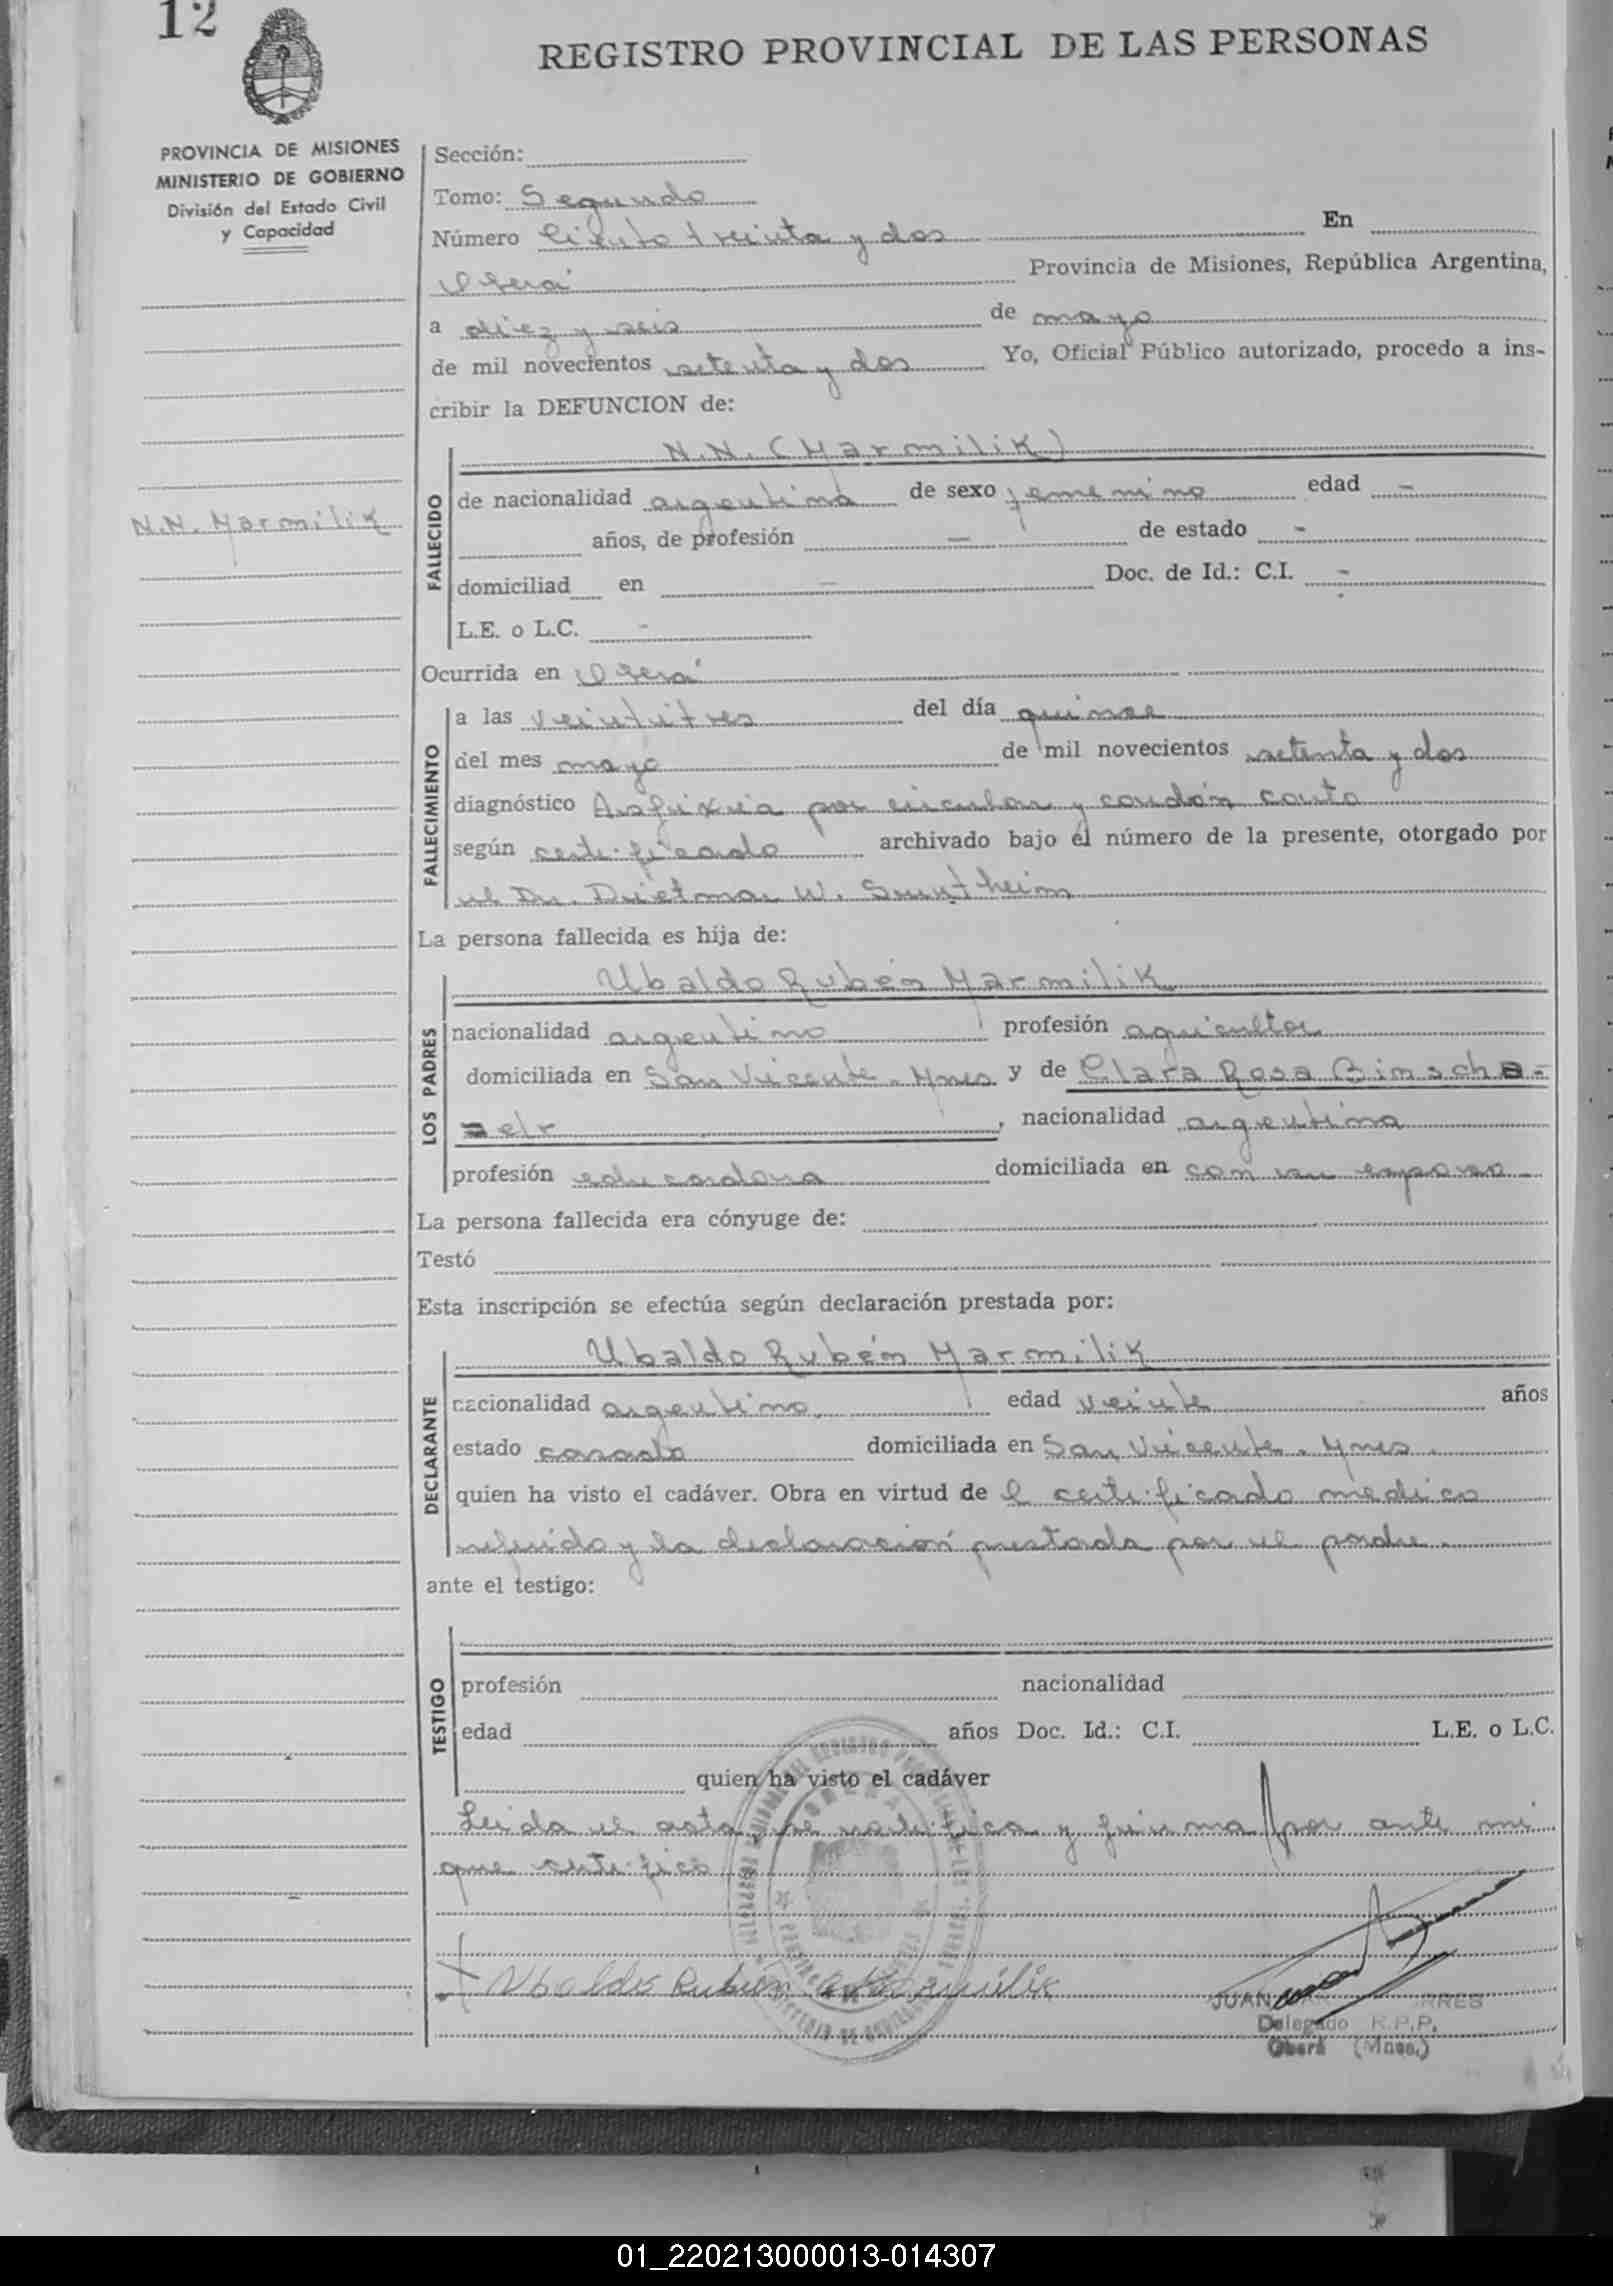 12
REGISTRO PROVINCIAL DE LAS PERSONAS
PROVINCIA DE MISIONES
MINISTERIO DE GOBIERNO
División del Estado Civil
y Capacidad
Sección:
Tomo: Segundo
Número Ciento treinta y dos En
Oberá Provincia de Misiones, República Argentina,
a diez y seis de mayo
de mil novecientos setenta y dos Yo, Oficial Público autorizado, procedo a ins-
cribir la DEFUNCION de:
N.N. (Marmilik)
N.N. Marmilik
FALLECIDO
de nacionalidad argentina de sexo femenino edad -
años, de profesión - de estado -
domiciliad en - Doc. de Id.: C.I. -
L.E. o L.C. -
Ocurrida en Oberá
FALLECIMIENTO
a las veintitres del día quince
del mes mayo de mil novecientos setenta y dos
diagnóstico Asfixia por circular y cordón corto
según certificado archivado bajo el número de la presente, otorgado por
el Dr. Dietmar W.
La persona fallecida es hija de:
Ubaldo Rubén Marmilik
LOS PADRES
nacionalidad argentino profesión agricultor
domiciliada en San Vicente. Mnes y de Clara Rosa
nacionalidad argentina
profesión educadora domiciliada en con su esposo
La persona fallecida era cónyuge de:
Testó
Esta inscripción se efectúa según declaración prestada por:
Ubaldo Rubén Marmilik
DECLARANTE
nacionalidad argentino edad veinte años
estado casado domiciliada en San Vicente. Mnes.
quien ha visto el cadáver. Obra en virtud de l certificado medico
referido y la declaración prestada por el padre.
ante el testigo:
TESTIGO
profesión nacionalidad
edad años Doc. Id.: C.I. L.E. o L.C.
quien ha visto el cadáver
Leida el acta, se ratifica y firma por ante mi
que certifico
Ubaldo Ruben Marmilik
JUAN
Delegado R.P.P.
Oberá (Mnes.)
01_220213000013-014307